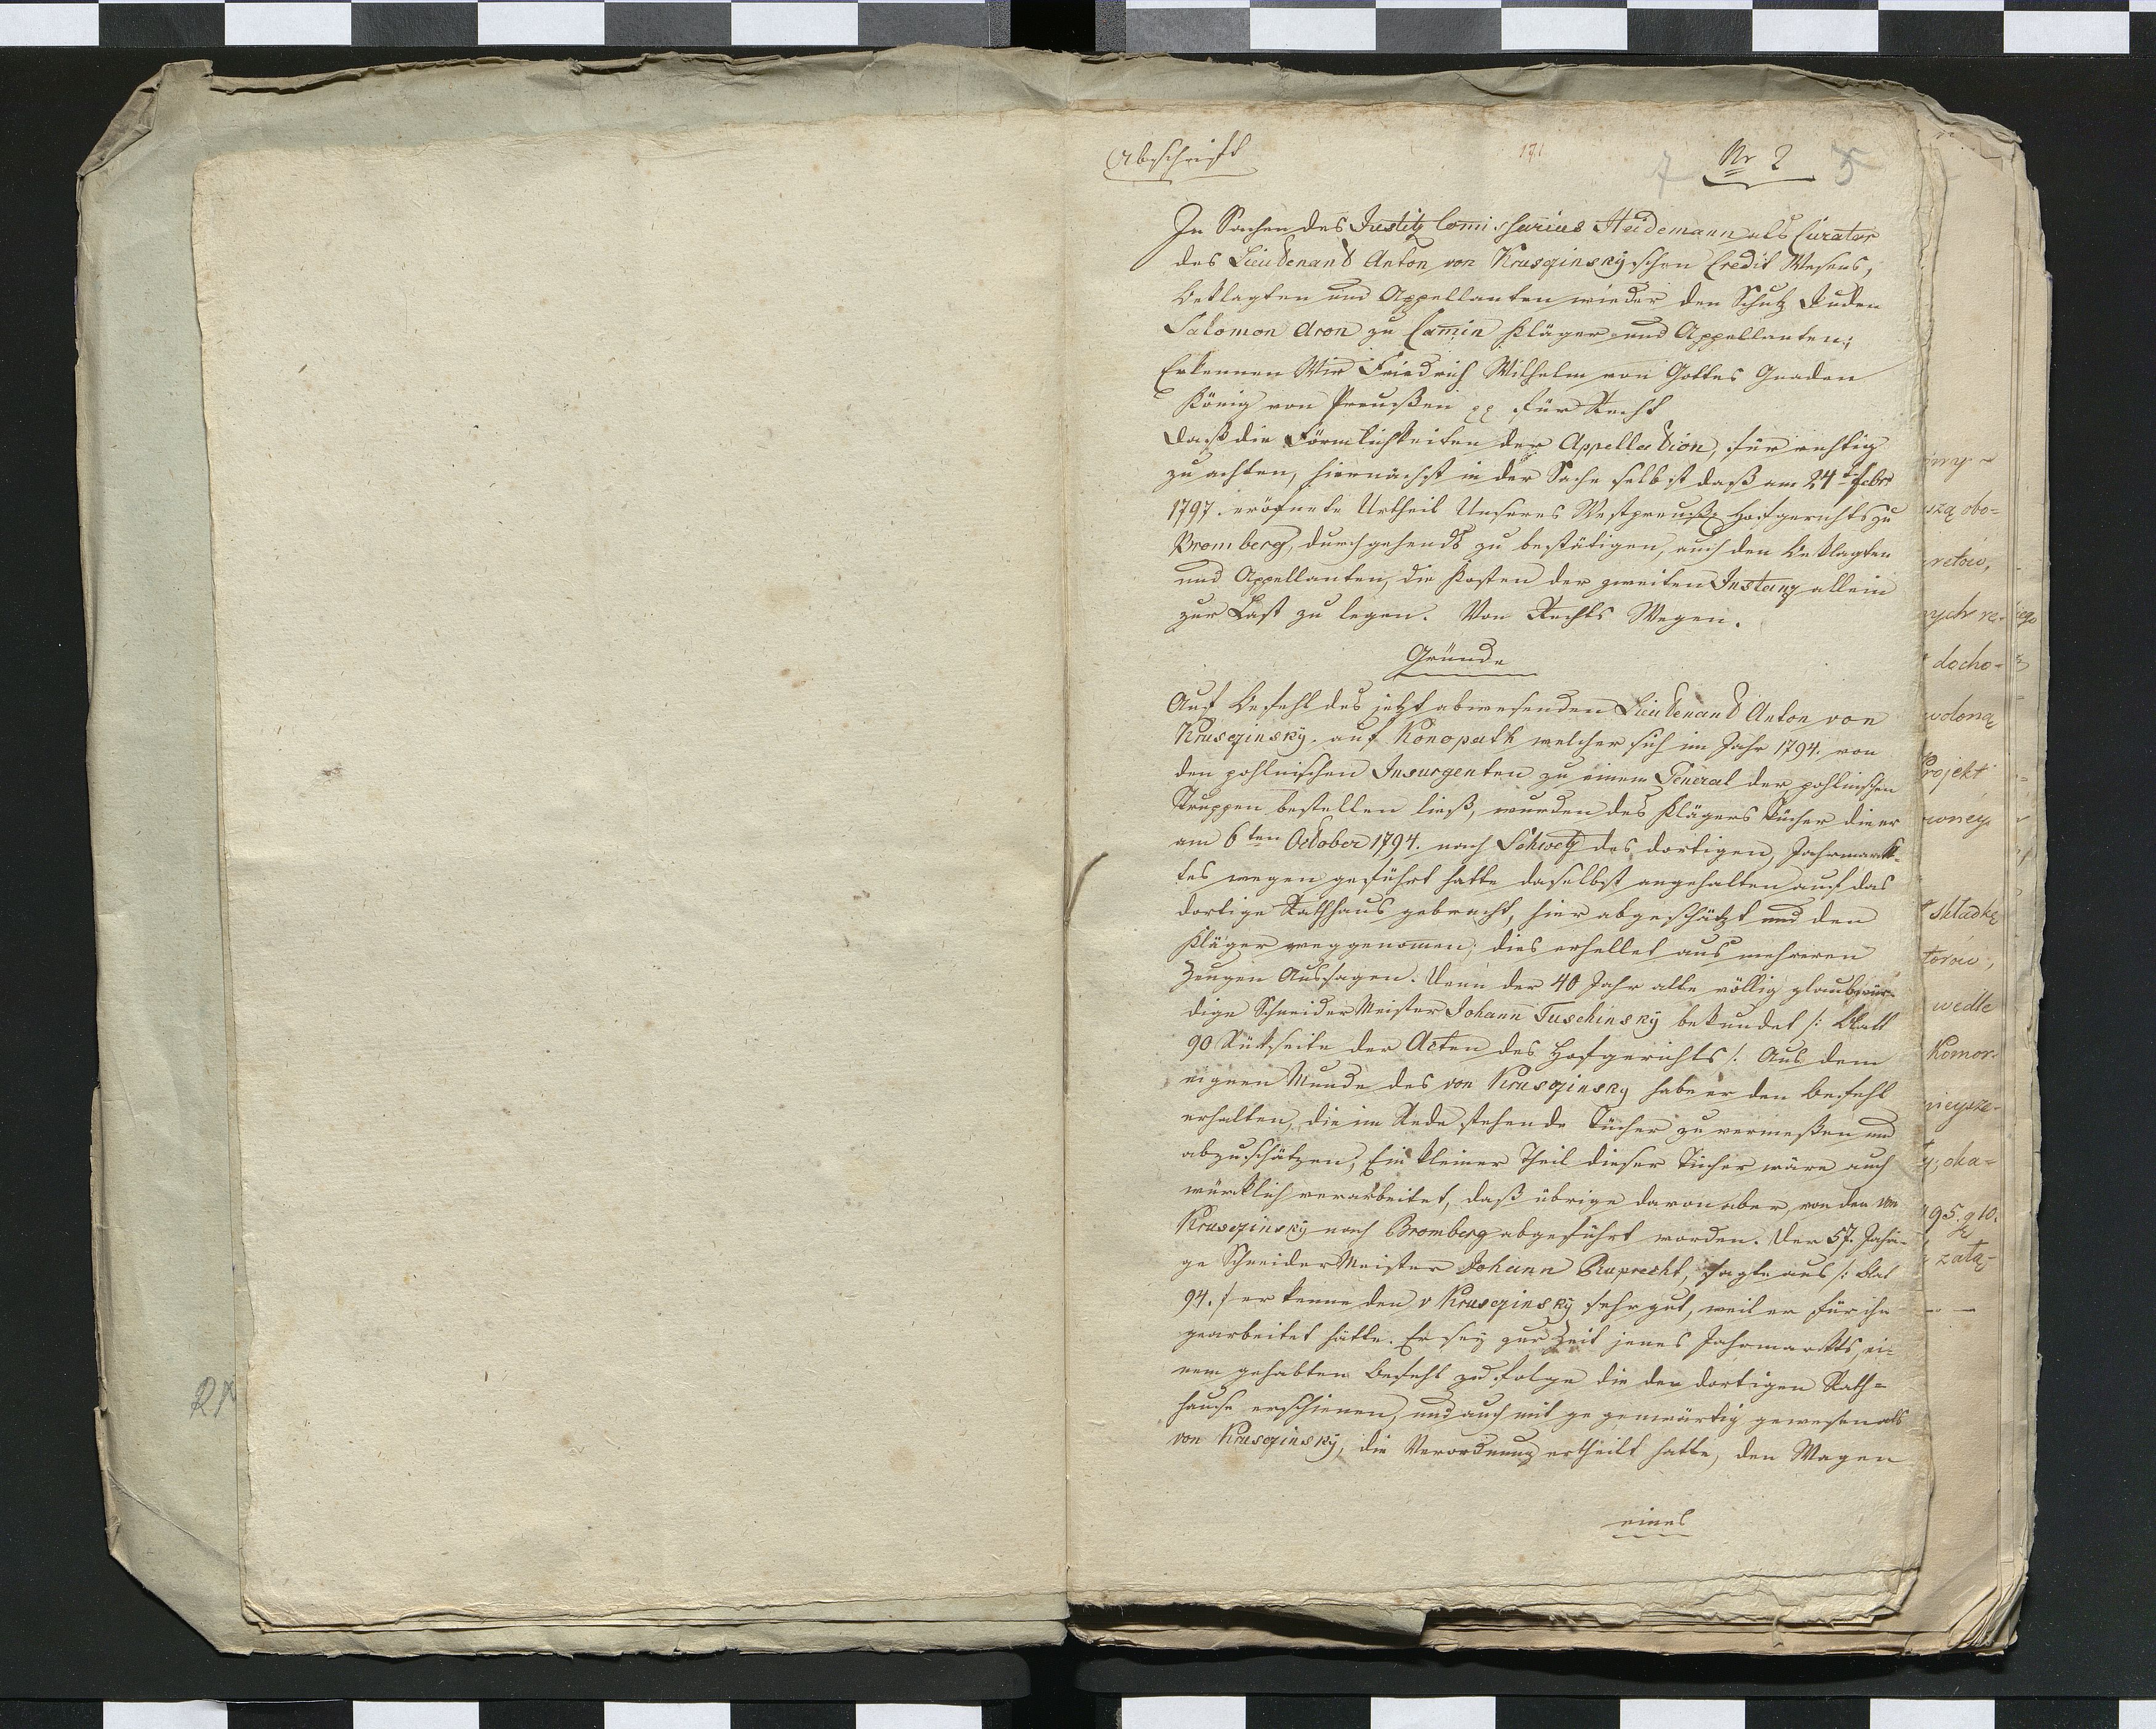 Abschrift
171
7
Nr 2
5
In Sachen des Justitz Comissarius Heidemann als Curator
des Lieutenant Anton von Krusczinsky schen Credit Wesens,
Beklagten und Appellanten wieder den Schutz Juden
Salomon Aron zu Camin Kläger und Appellanten;
Erkennen Wir Friedrich Wilhelm von Gottes Gnaden
König von Preußen pp für Recht
daß die Förmlichkeiten der Appellation, für richtig
zu achten, hiernächst in der Sache selbst daß am 24t Febr
1797. eröfnete Urtheil Unseres Westpreuß: Hofgerichts zu
Bromberg, durchgehends zu bestätigen, auch den Beklagten
und Appellanten, die Kosten der zweiten Instanz allein
zur Last zu legen. Von Rechts Wegen.
Gründe
Auf Befehl des jetzt abwesenden Lieutenant Anton von
Krusczinsky. auf Konopath welcher sich im Jahr 1794. von
den pohlnischen Insurgenten zu einem General der pohlnischen
Truppen bestellen ließ, wurden des Klägers Tücher die er
am 6ten October 1794. nach Schwetz des dortigen, Jahrmark-
tes wegen geführt hatte daselbst angehalten auf das
dortige Rathhaus gebracht, hier abgeschätzt und den
Kläger weggenomen; dies erhellet aus mehreren
Zeugen Aussagen. Denn der 40 Jahr alte völlig glaubwür-
dige Schneider Meister Johann Tuschinsky bekundet /: Blatt
90 Rükseite der Acten des Hofgerichts /: Aus dem
eignen Munde des von Krusczinsky habe er den Befehl
erhalten, die im Rede stehende Tücher zu vermeßen und
abzuschätzen, Ein kleiner Theil dieser Tücher wäre auch
würcklich verarbeitet, daß übrige davon aber, von den von
Krusczinsky nach Bromberg abgeführt worden. Der 57. Jähri-
ge Schneider Meister Johann Ruprecht, sagte aus /: Blat
94. / er kenne den v Krusczinsky sehr gut, weil er für ihn
gearbeitet hätte. Er sey zur Zeit jenes Jahrmarkts, ei-
nem gehabten Befehl zu folge die den dortigen Rath=
hause erschienen, und auch mit gegenwärtig gewesen als
von Krusczinsky, die Verordnung ertheilt hatte, den Wagen
eines
szą obo=
retow,
nych re-
docho=
wolona
Projekt
składkę
torow,
wedle
Komor-
nieysze-
, oka=
95. g 10.
zata-